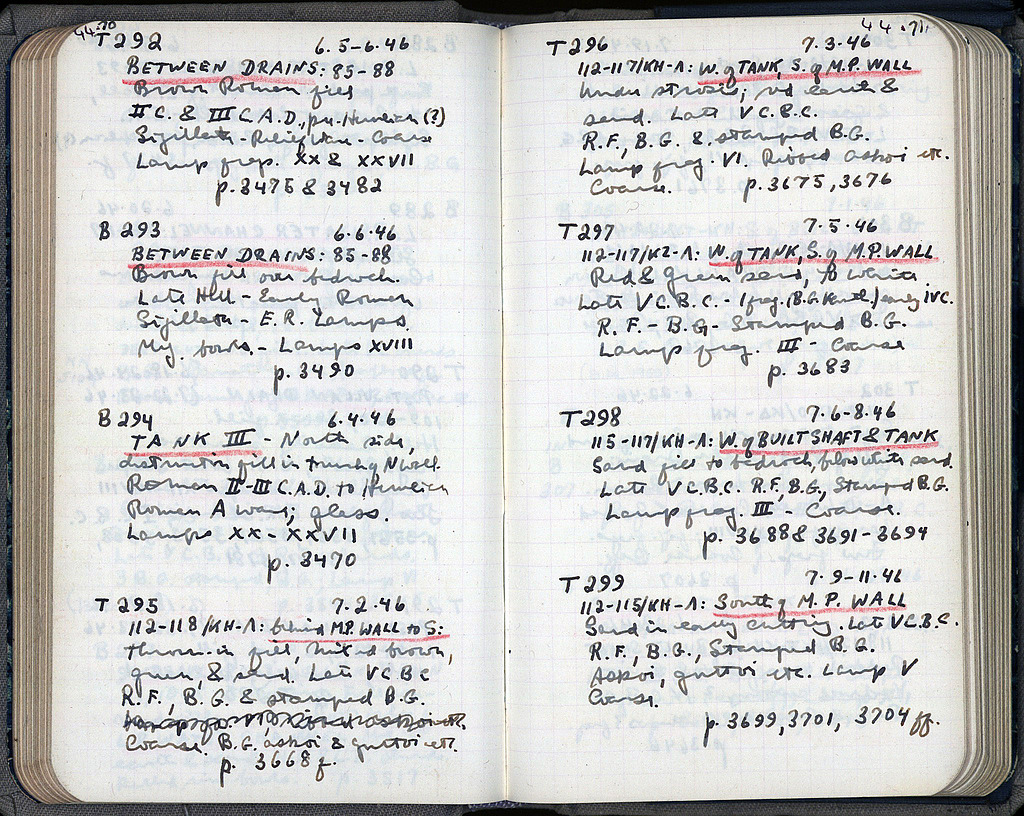 44.70
T 292 6.5-6.46
BETWEEN DRAINS: 85-88
Brown Roman fill
II C. & III C. A.D., pre-Herulian (?)
Sigillata - Relief ware - Coarse
Lamp frags. XX & XXVII
p. 3475 & 3482
B 293 6.6.46
BETWEEN DRAINS: 85-88
Brown fill over bedrock.
Late Hell - Early Roman
Sigillata - E.R. Lamps
Meg. bowls. - Lamps XVIII
p. 3490
B 294 6.4.46
TANK III - North side,
destruction fill in trench of N wall.
Roman II-III C. A.D. to Herulian
Roman A ware; glass.
Lamps XX - XXVII
p. 3470
T 295 7.2.46
112-118/KH-Λ: behind M.P. WALL to S:
thrown in fill, mixed brown,
green, & sand. Late V C. B.C.
R.F., B.G. & stamped B.G.
Coarse. B.G. askoi & guttoi etc.
p. 3668 f.
44.71
T 296 7.3.46
112-117/KH-Λ: W. of TANK, S. of M.P. WALL
Under strosis; red earth &
sand. Late V C. B.C.
R.F., B.G. & stamped B.G.
Lamp frag. VI. Ribbed askoi etc.
Coarse. p. 3675, 3676
T 297 7.5.46
112-117/KZ-Λ: W. of TANK, S. of M.P. WALL
Red & green sand, to white
Late V C. B.C. - 1 frag. (B.G. Kanth.) early IV C.
R.F. - B.G - Stamped B.G.
Lamp frag. III - Coarse
p. 3683
T 298 7.6-8.46
115-117/KH-Λ: W. of BUILT SHAFT & TANK
Sand fill to bedrock, below white sand.
Late V C. B.C. R.F., B.G., Stamped B.G.
Lamp frag. III - Coarse.
p. 3688 & 3691-3694
T 299 7.9-11.46
112-115/KH-Λ: South of M.P. WALL
Sand in early cutting. Late V C. B.C.
R.F., B.G., Stamped B.G.
Askoi, guttoi etc. Lamp V
Coarse.
p. 3699, 3701, 3704 ff.